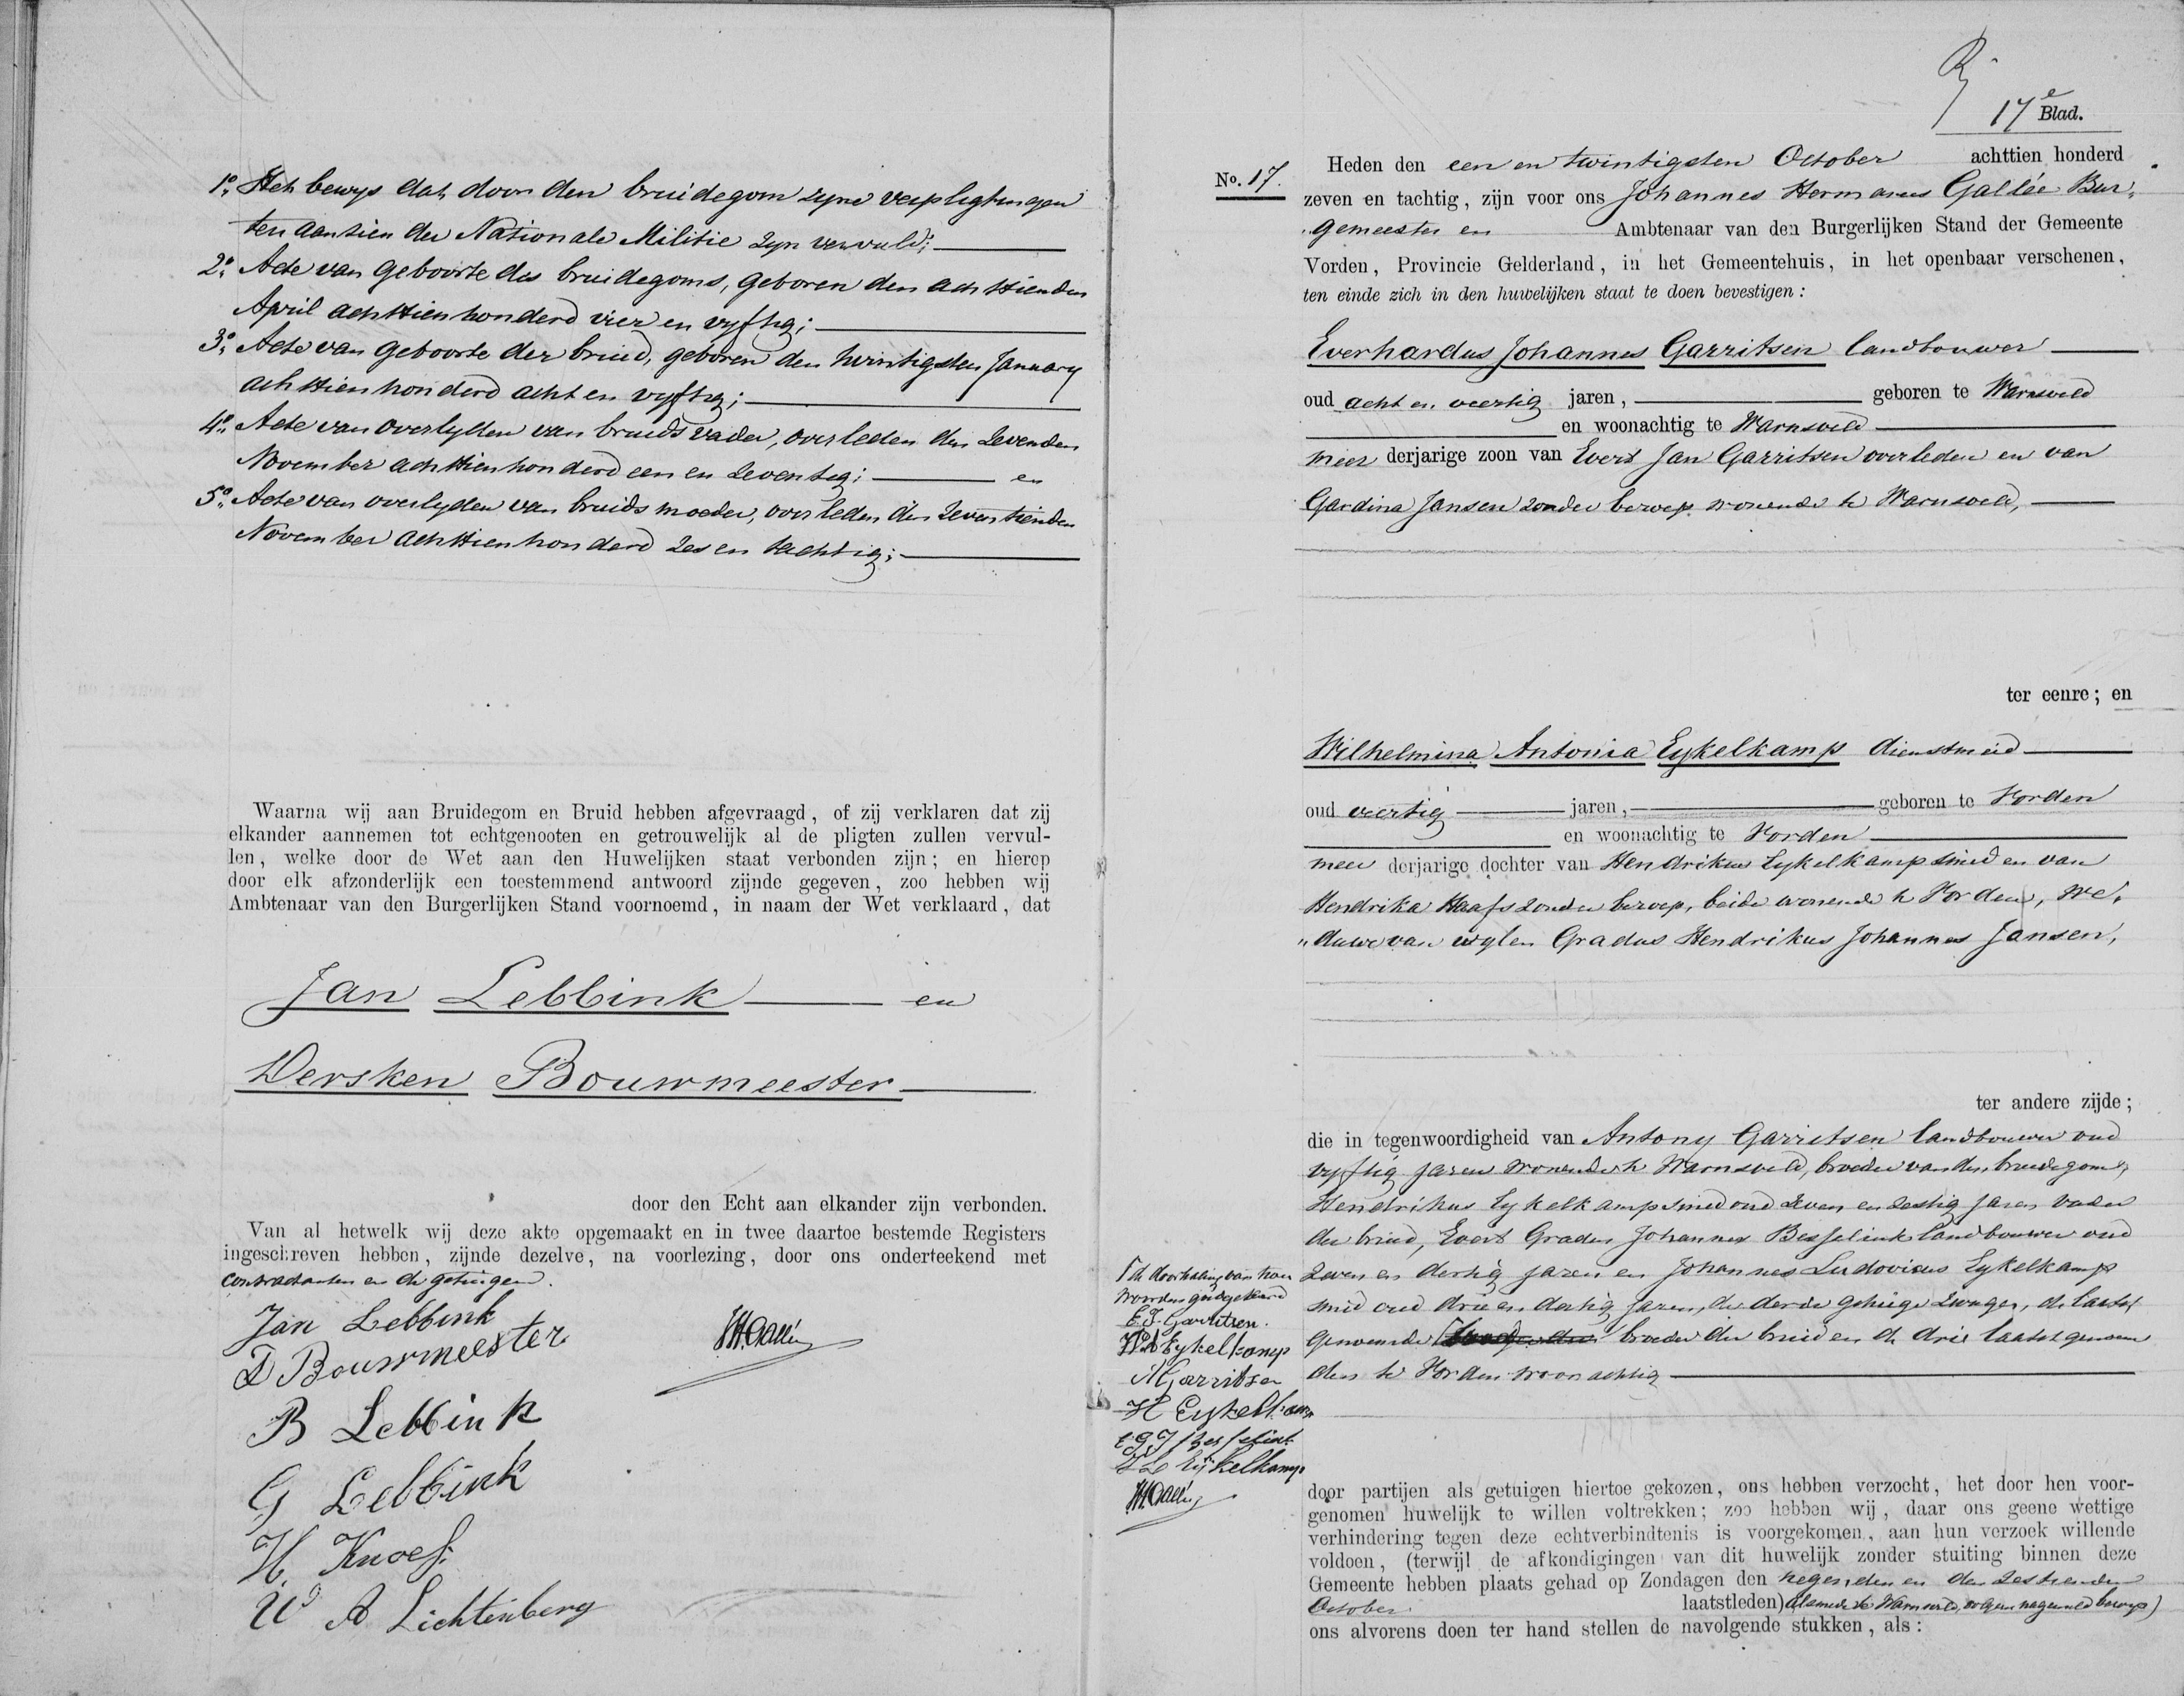 1o. Het bewys dat door den bruidegom zyne verpligtingen
ten aanzien der Nationale Militie zyn vervuld;
2o. Acte van geboorte des bruidegoms, geboren den achttienden
April achttienhonderd vier en vyftig;
3o. Acte van geboorte der bruid, geboren den twintigsten January
achttienhonderd acht en vyftig;
4o. Acte van overlyden van bruids vader, overleden den zevenden
November achttienhonderd een en zeventig; en
5o. Acte van overlyden van bruids moeder, overleden den zeventienden
November achttienhonderd zes en tachtig;
Waarna wij aan Bruidegom en Bruid hebben afgevraagd, of zij verklaren dat zij
elkander aannemen tot echtgenooten en getrouwelijk al de pligten zullen vervul-
len, welke door de Wet aan den Huwelijken staat verbonden zijn; en hierop
door elk afzonderlijk een toestemmend antwoord zijnde gegeven, zoo hebben wij
Ambtenaar van den Burgerlijken Stand voornoemd, in naam der Wet verklaard, dat
Jan Lebbink en
Dersken Bouwmeester
door den Echt aan elkander zijn verbonden.
Van al hetwelk wij deze akte opgemaakt en in twee daartoe bestemde Registers
ingeschreven hebben, zijnde dezelve, na voorlezing, door ons onderteekend met
contractanten en de getuigen.
Jan Lebbink
D Bouwmeester
JHGallée
B Lebbink
G Lebbink
H. Knoef
W A Lichtenberg
17e Blad.
No. 17.
Heden den een en twintigsten October achttien honderd
zeven en tachtig, zijn voor ons Johannes Hermanus Gallée Bur-
gemeester en Ambtenaar van den Burgerlijken Stand der Gemeente
Vorden, Provincie Gelderland, in het Gemeentehuis, in het openbaar verschenen,
ten einde zich in den huwelijken staat te doen bevestigen:
Everhardus Johannes Garritsen landbouwer
oud acht en veertig jaren, geboren te Warnsveld
en woonachtig te Warnsveld
meer derjarige zoon van Evert Jan Garritsen overleden en van
Gardina Jansen zonder beroep wonende te Warnsveld,
ter eenre; en
Wilhelmina Antonia Eykelkamp dienstmeid
oud veertig jaren, geboren te Vorden
en woonachtig te Vorden
meer derjarige dochter van Hendrikus Eykelkamp smid en van
Hendrika Haafs zonder beroep, beide wonende te Vorden, we-
"duwe van wylen Gradus Hendrikus Johannes Jansen,
ter andere zijde;
die in tegenwoordigheid van Antony Garritsen landbouwer oud
vyftig jaren wonende te Warnsveld, broeder van den bruidegom,
Hendrikus Eykelkamp smid oud zeven en zestig jaren vader
der bruid, Evert Gradus Johannes Besselink landbouwer oud
zeven en dertig jaren en Johannes Ludovicus Eykelkamp
smid oud drie en dertig jaren, de derde getuige zwager, de laatst
genoemde broeder der bruid en de drie laatst genoem
den te Vorden woonachtig
de doorhaling van twee
woorden goedgekeurd
E.J. Garritsen.
W A Eykelkamp
A Garritsen
H Eykelkamp
E G J Besselink
J L Eijkelkamp
JHGallée
door partijen als getuigen hiertoe gekozen, ons hebben verzocht, het door hen voor-
genomen huwelijk te willen voltrekken; zoo hebben wij, daar ons geene wettige
verhindering tegen deze echtverbindtenis is voorgekomen, aan hun verzoek willende
voldoen, (terwijl de afkondigingen van dit huwelijk zonder stuiting binnen deze
Gemeente hebben plaats gehad op Zondagen den negenden en den zestienden
October laatstleden) alsmede te Warnsveld, volgens nagemeld bewys)
ons alvorens doen ter hand stellen de navolgende stukken, als: